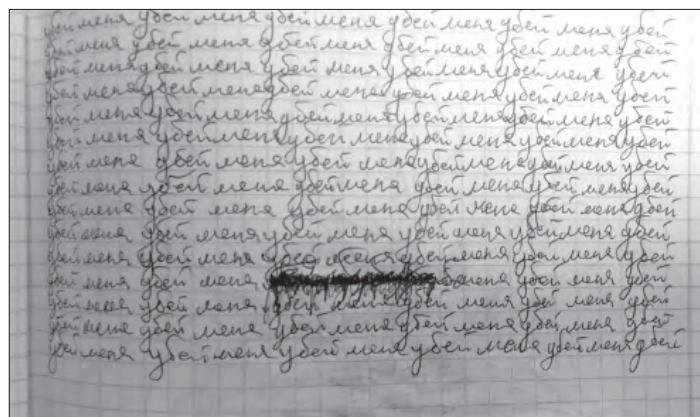 убей меня убей меня убей меня убей меня убей меня убей
убей меня убей меня убей меня убей меня убей меня убей
убей меня убей меня убей меня убей меня убей меня убей
убей меня убей меня убей меня убей меня убей меня убей
убей меня убей меня убей меня убей меня убей меня убей
убей меня убей меня убей меня убей меня убей меня убей
убей меня убей меня убей меня убей меня убей меня убей
убей меня убей меня убей меня убей меня убей меня убей
убей меня убей меня убей меня убей меня убей меня убей
убей меня убей меня убей меня убей меня убей меня убей
убей меня убей меня убей меня убей меня убей меня убей
убей меня убей меня меня убей меня убей
убей меня убей меня убей меня убей меня убей меня убей
убей меня убей меня убей меня убей меня убей меня убей
убей меня убей меня убей меня убей меня убей меня убей